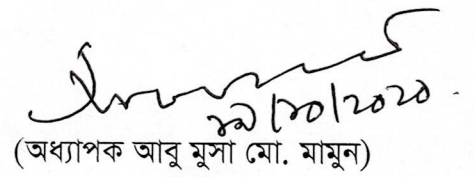 ১৯/১০/২০২০
(অধ্যাপক আবু মুসা মো. মামুন)